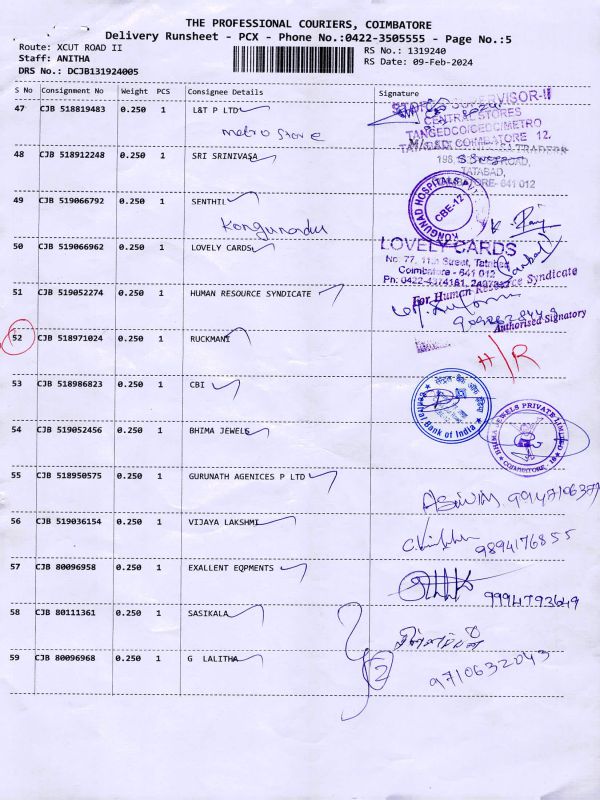 THE PROFESSIONAL COURIERS, COIMBATORE
Delivery Runsheet - PCX - Phone No.:0422-3505555 - Page No.:5
Route: XCUT ROAD II
RS No.: 1319240
Staff: ANITHA
RS Date: 09-Feb-2024
DRS No.: DCJB131924005
S No Consignment No Weight PCS Consignee Details Signature
47 CJB 518819483 0.250 1 L&T P LTD
metro store
CENTRAL STORES
48 CJB 518912248 0.250 1 SRI SRINIVASA
TATABAD,
49 CJB 519066792 0.250 1 SENTHIL
Kongunadu
KONGUNAD HOSPITALS
CBE-12
50 CJB 519066962 0.250 1 LOVELY CARDS
LOVELY CARDS
No. 77, 11th Street, Tatabad
Coimbatore - 641 012
51 CJB 519052274 0.250 1 HUMAN RESOURCE SYNDICATE
For Human Resource Syndicate
Authorised Signatory
52 CJB 518971024 0.250 1 RUCKMANI
H/R
53 CJB 518986823 0.250 1 CBI
Central Bank of India
54 CJB 519052456 0.250 1 BHIMA JEWELS
BHIMA JEWELS PRIVATE LIMITED
COIMBATORE
55 CJB 518950575 0.250 1 GURUNATH AGENICES P LTD
56 CJB 519036154 0.250 1 VIJAYA LAKSHMI
9894176855
57 CJB 80096958 0.250 1 EXALLENT EQPMENTS
9994793649
58 CJB 80111361 0.250 1 SASIKALA
59 CJB 80096968 0.250 1 G LALITHA
2
9710632043